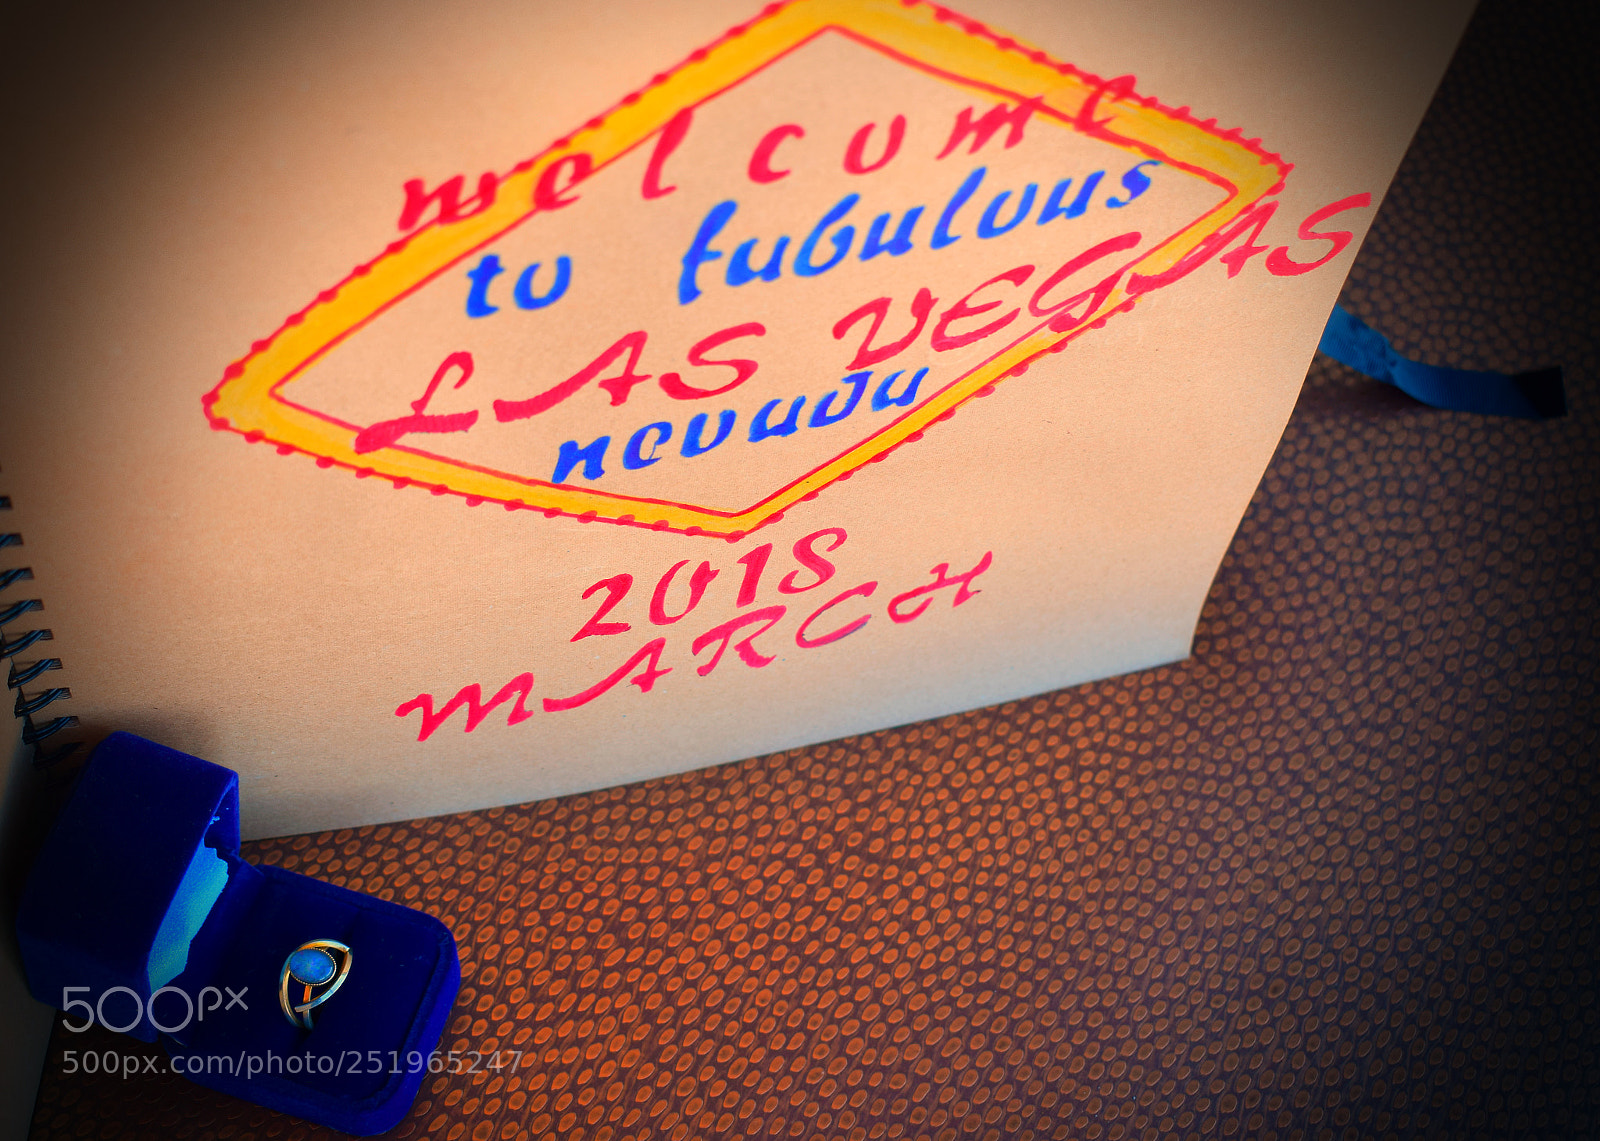 welcome
to fabulous
LAS VEGAS
nevada
2018
MARCH
500px
500px.com/photo/251965247